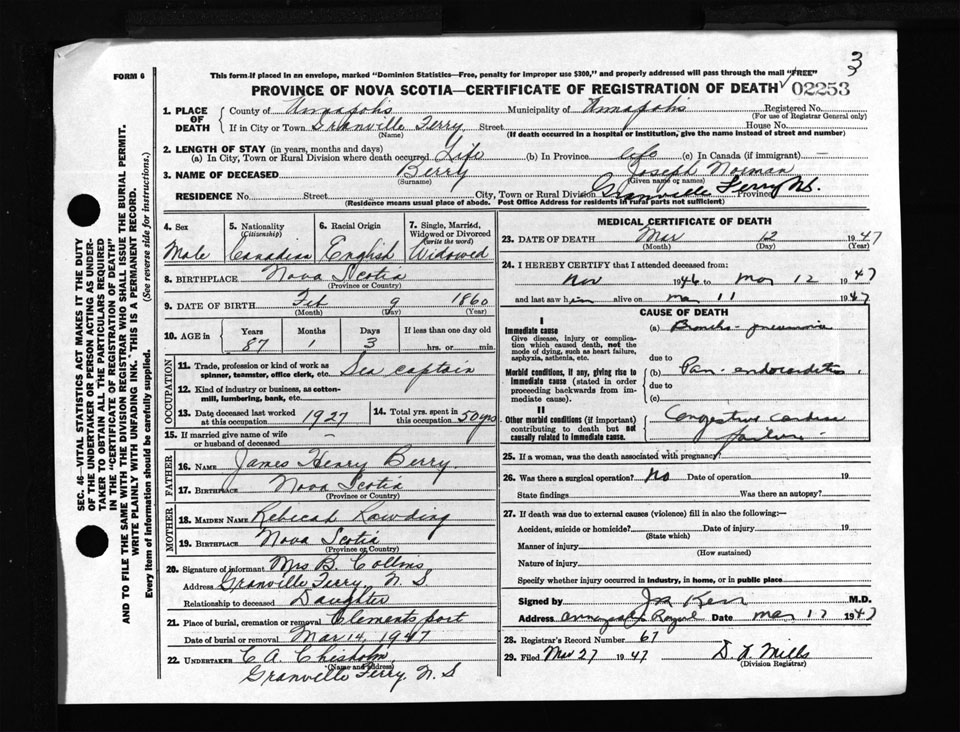 3
FORM 6
This form if placed in an envelope, marked "Dominion Statistics—Free, penalty for improper use $300," and properly addressed will pass through the mail "FREE"
PROVINCE OF NOVA SCOTIA—CERTIFICATE OF REGISTRATION OF DEATH 02253
1. PLACE OF DEATH County of Annapolis Municipality of Annapolis Registered No.
(For use of Registrar General only)
If in City or Town Granville Ferry Street House No.
(Name) (If death occurred in a hospital or institution, give the name instead of street and number)
2. LENGTH OF STAY (in years, months and days)
(a) In City, Town or Rural Division where death occurred Life (b) In Province life (c) In Canada (if immigrant) —
3. NAME OF DECEASED Berry Joseph Norman
(Surname) (Given name or names)
RESIDENCE No. Street City, Town or Rural Division Granville Ferry Province N.S.
(Residence means usual place of abode. Post Office Address for residents in rural parts not sufficient)
4. Sex 5. Nationality (Citizenship) 6. Racial Origin 7. Single, Married, Widowed or Divorced (write the word)
Male Canadian English Widowed
8. BIRTHPLACE Nova Scotia
(Province or Country)
9. DATE OF BIRTH Feb 9 1860
(Month) (Day) (Year)
10. AGE in Years Months Days If less than one day old
87 1 3 hrs. or min.
OCCUPATION
11. Trade, profession or kind of work as spinner, teamster, office clerk, etc. Sea captain
12. Kind of industry or business, as cotton-mill, lumbering, bank, etc.
13. Date deceased last worked at this occupation 1927 14. Total yrs. spent in this occupation 50 yrs
15. If married give name of wife or husband of deceased —
FATHER
16. NAME James Henry Berry
17. BIRTHPLACE Nova Scotia
(Province or Country)
MOTHER
18. MAIDEN NAME Rebecah Rowding
19. BIRTHPLACE Nova Scotia
(Province or Country)
20. Signature of informant Mrs B. Collins
Address Granville Ferry, N S
Relationship to deceased Daughter
21. Place of burial, cremation or removal Clementsport
Date of burial or removal Mar 14, 1947
22. UNDERTAKER C A. Chisholm
(Name and address)
Granville Ferry. N. S
MEDICAL CERTIFICATE OF DEATH
23. DATE OF DEATH Mar 12 1947
(Month) (Day) (Year)
24. I HEREBY CERTIFY that I attended deceased from:
Nov 1946 to Mar 12 1947
and last saw him alive on Mar 11 1947
CAUSE OF DEATH
I
Immediate cause
Give disease, injury or complication which caused death, not the mode of dying, such as heart failure, asphyxia, asthenia, etc.
(a) Broncho-pneumonia
due to
Morbid conditions, if any, giving rise to immediate cause (stated in order proceeding backwards from immediate cause).
Pan-endocarditis.
due to
(c)
II
Other morbid conditions (if important) contributing to death but not causally related to immediate cause.
Congestive cardiac failure
25. If a woman, was the death associated with pregnancy?
26. Was there a surgical operation? No Date of operation 19
State findings Was there an autopsy?
27. If death was due to external causes (violence) fill in also the following:—
Accident, suicide or homicide? Date of injury 19
(State which)
Manner of injury
(How sustained)
Nature of injury
Specify whether injury occurred in industry, in home, or in public place
Signed by Kerr M.D.
Address Annapolis Royal Date Mar 1947
28. Registrar's Record Number 67
29. Filed Mar 27 1947 Mills
(Division Registrar)
SEC. 46—VITAL STATISTICS ACT MAKES IT THE DUTY
OF THE UNDERTAKER OR PERSON ACTING AS UNDER-
TAKER TO OBTAIN ALL THE PARTICULARS REQUIRED
IN THE "CERTIFICATE OF REGISTRATION OF DEATH"
AND TO FILE THE SAME WITH THE DIVISION REGISTRAR WHO SHALL ISSUE THE BURIAL PERMIT.
WRITE PLAINLY WITH UNFADING INK. THIS IS A PERMANENT RECORD.
Every item of information should be carefully supplied. (See reverse side for instructions.)